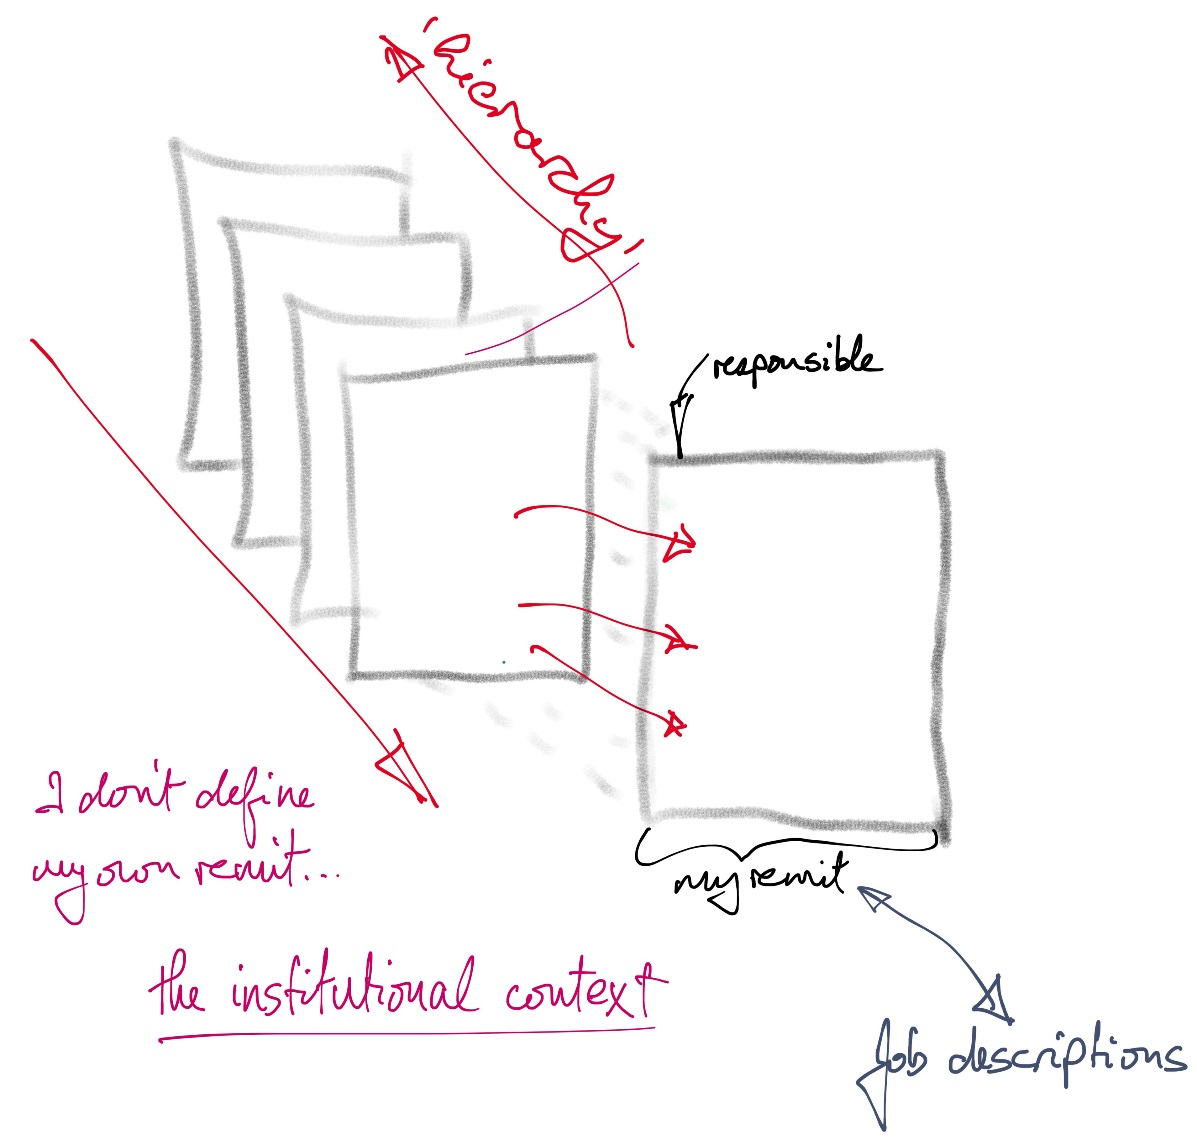 'hierarchy'
responsible
I don't define
my own remit...
my remit
the institutional context
Job descriptions